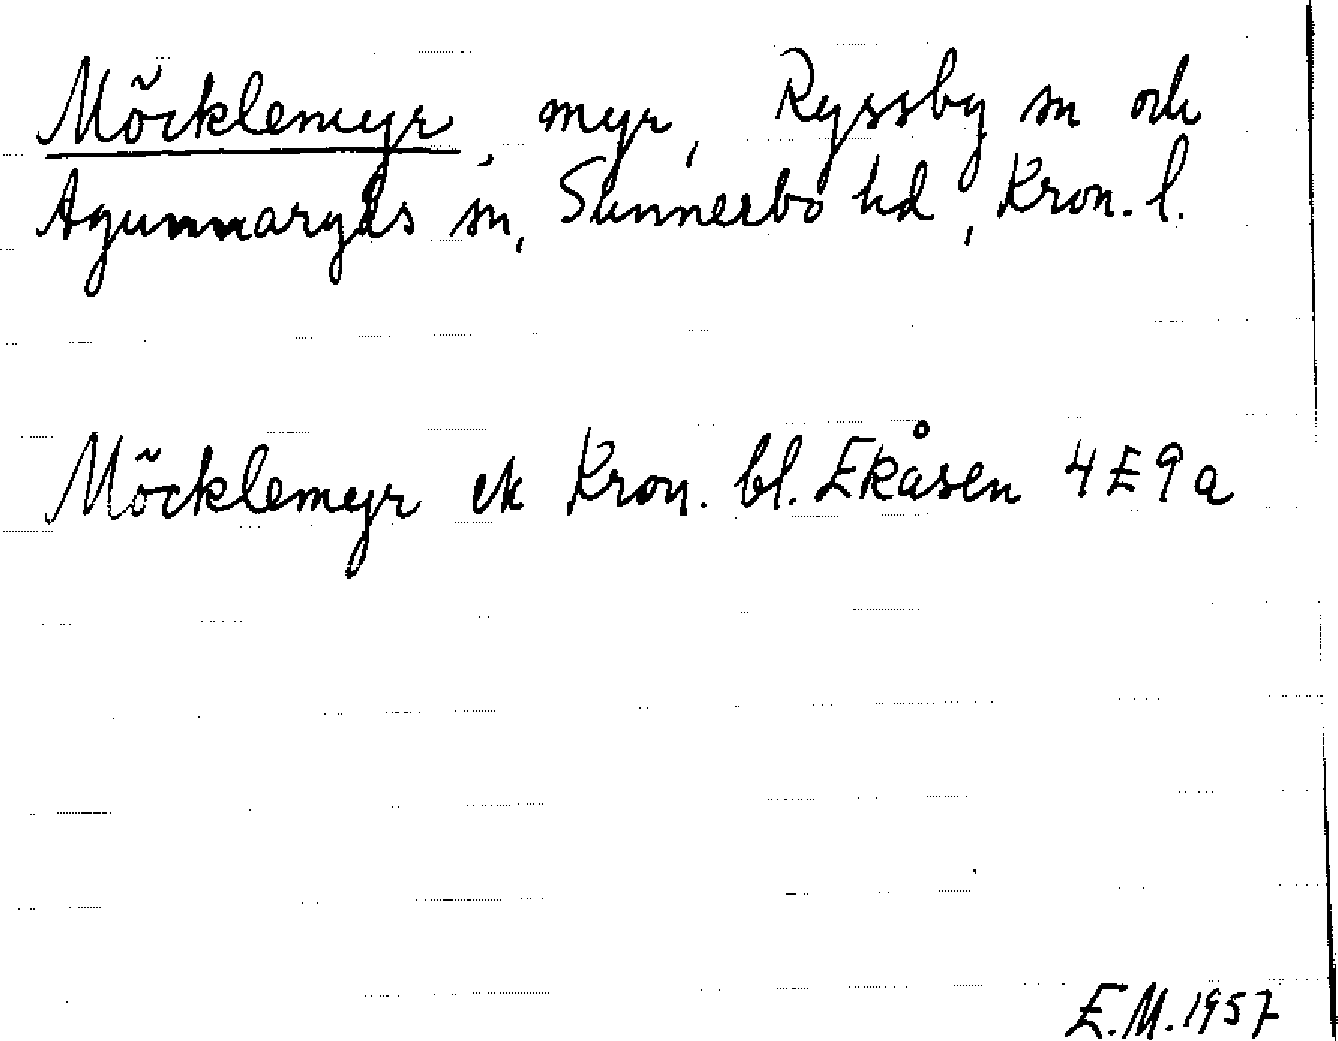 Möcklemyr, myr, Ryssby sn och
Agunnaryds sn, Sunnerbo hd, Kron. l.
Möcklemyr ek Kron. bl. Ekåsen 4E9a
E.M. 1957